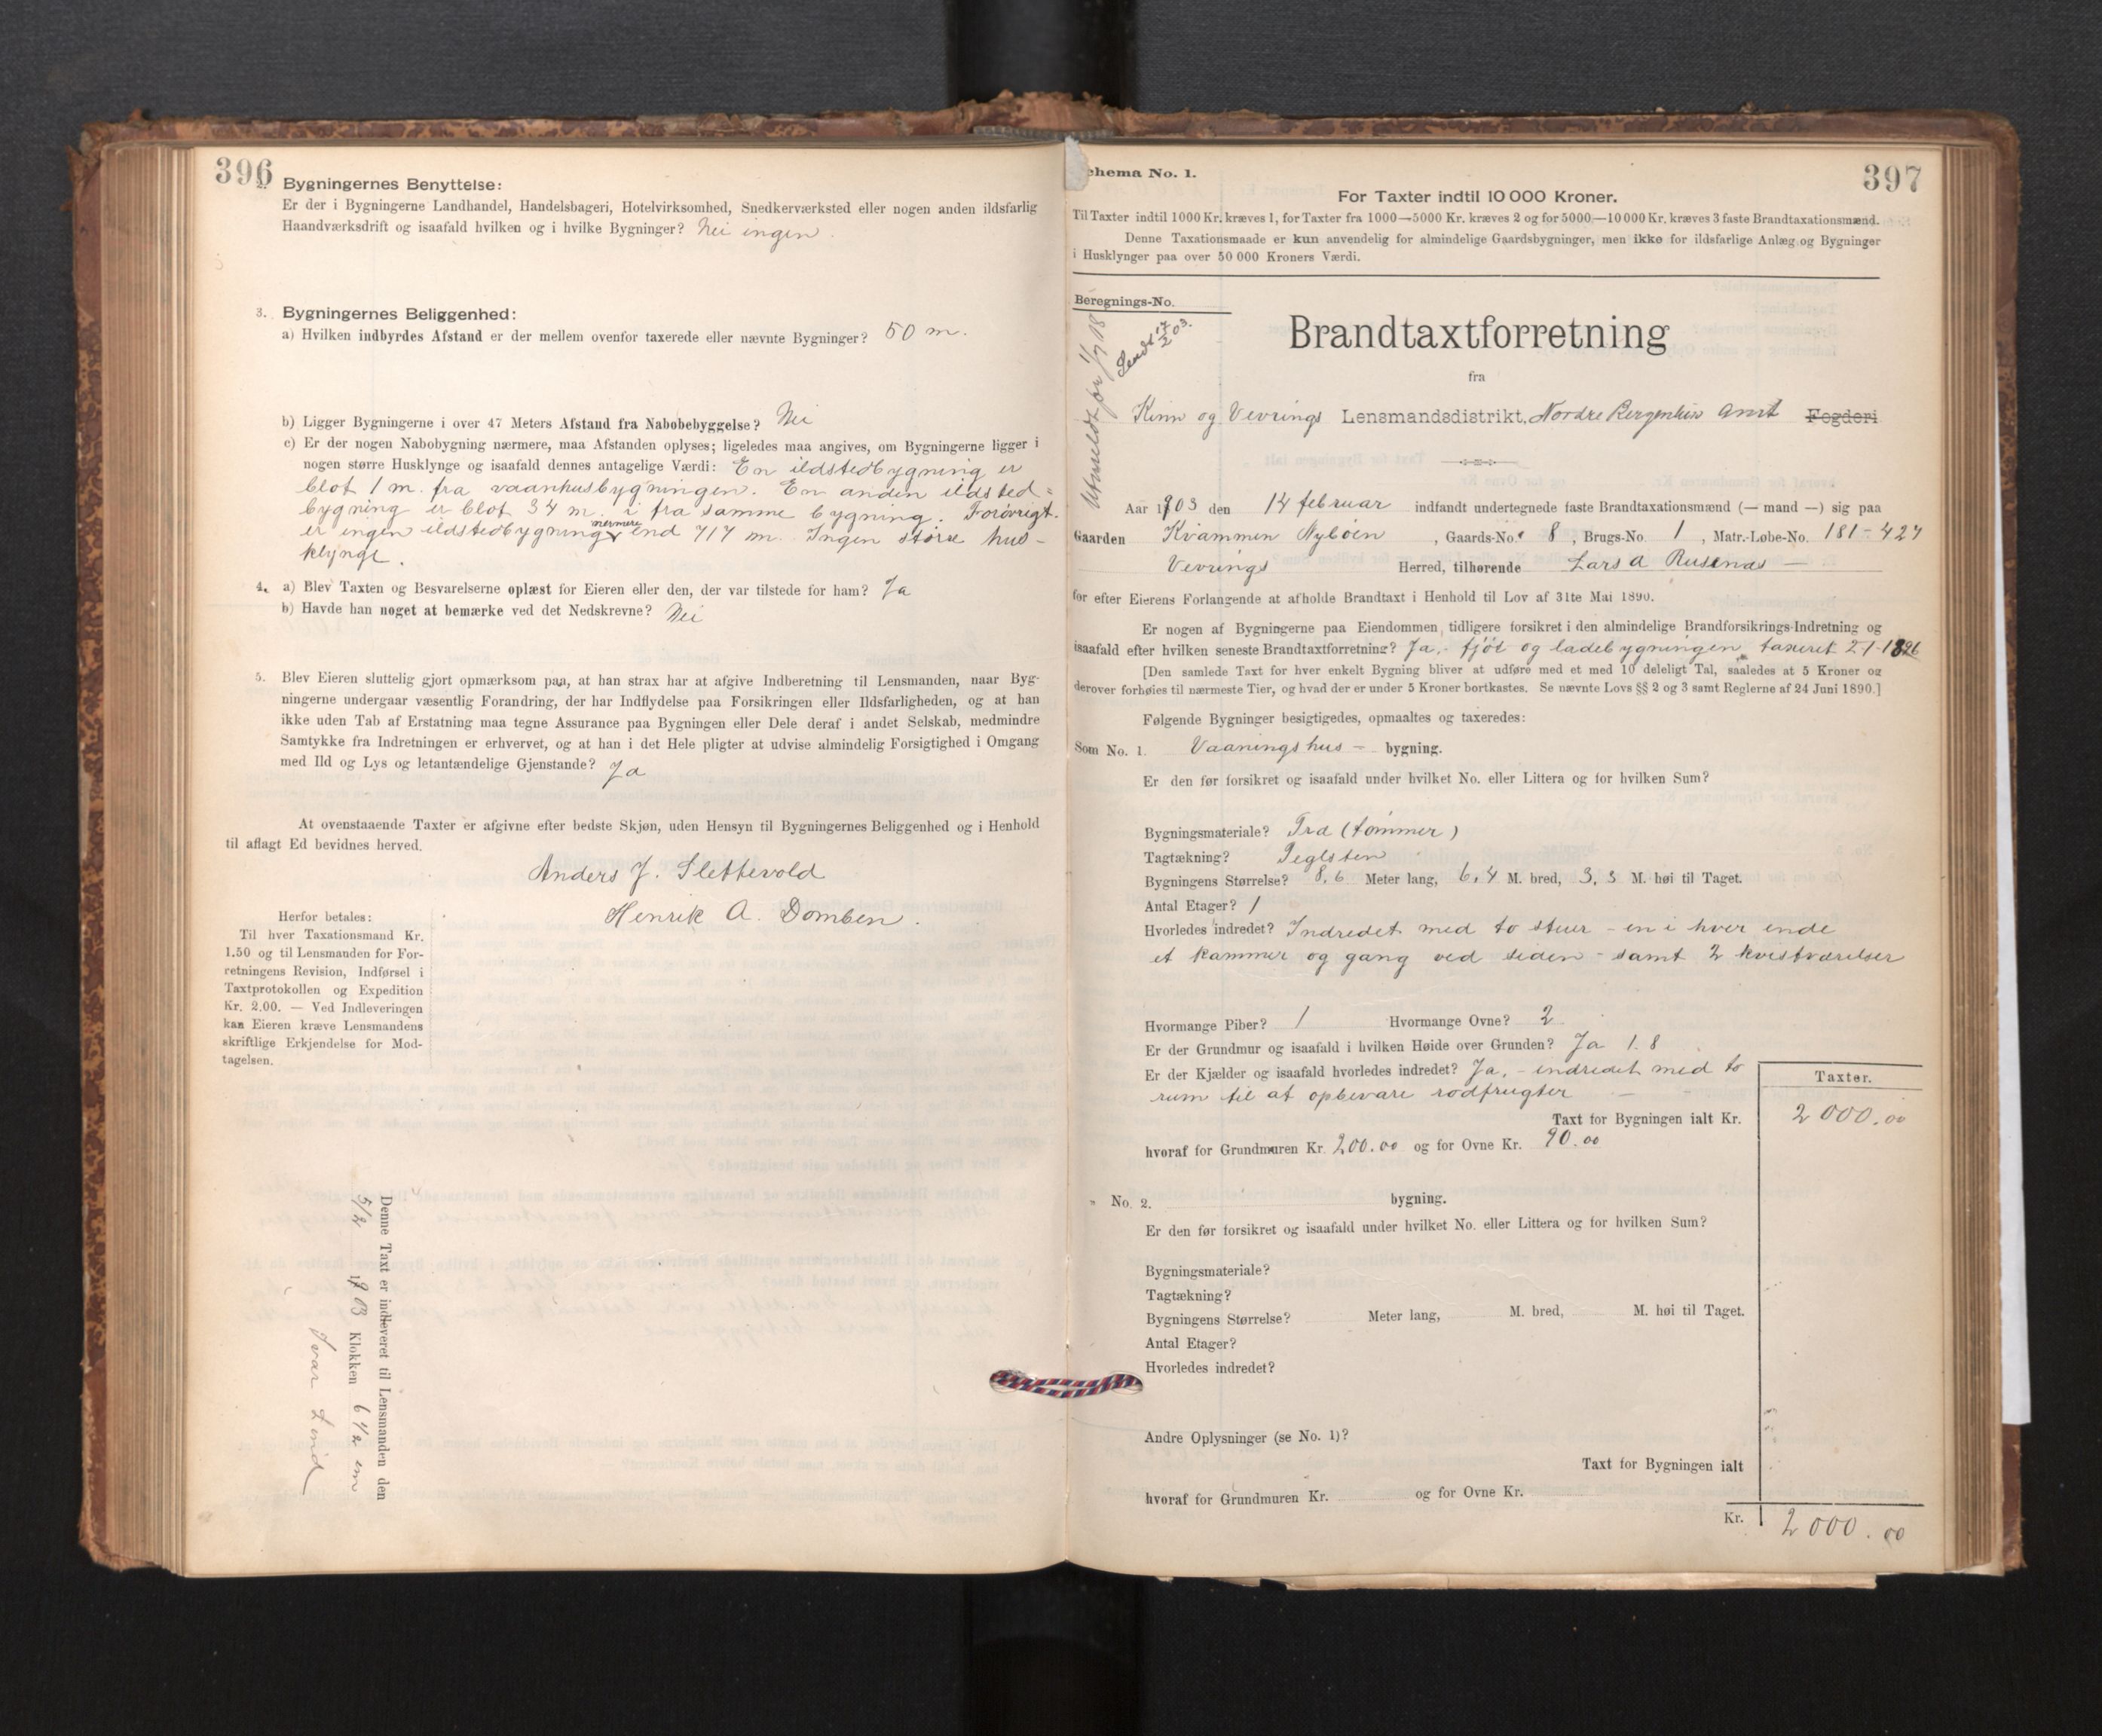 396
2. Bygningernes Benyttelse:
Er der i Bygningerne Landhandel, Handelsbageri, Hotelvirksomhed, Snedkerværksted eller nogen anden ildsfarlig
Haandværksdrift og isaafald hvilken og i hvilke Bygninger? Nei ingen.
3. Bygningernes Beliggenhed:
a) Hvilken indbyrdes Afstand er der mellem ovenfor taxerede eller nævnte Bygninger? 50 m.
b) Ligger Bygningerne i over 47 Meters Afstand fra Nabobebyggelse? Nei
c) Er der nogen Nabobygning nærmere, maa Afstanden oplyses; ligeledes maa angives, om Bygningerne ligger i
nogen større Husklynge og isaafald dennes antagelige Værdi: En ildstedbygning er
blot 1 m. fra vaanhusbygningen. En anden ildsted=
bygning er blot 34 m. i fra samme bygning. Forøvrigt
er ingen ildstedbygning nermere end 717 m. Ingen større hus-
klynge.
4. a) Blev Taxten og Besvarelserne oplæst for Eieren eller den, der var tilstede for ham? Ja
b) Havde han noget at bemærke ved det Nedskrevne? Nei
5. Blev Eieren sluttelig gjort opmærksom paa, at han strax har at afgive Indberetning til Lensmanden, naar Byg-
ningerne undergaar væsentlig Forandring, der har Indflydelse paa Forsikringen eller Ildsfarligheden, og at han
ikke uden Tab af Erstatning maa tegne Assurance paa Bygningen eller Dele deraf i andet Selskab, medmindre
Samtykke fra Indretningen er erhvervet, og at han i det Hele pligter at udvise almindelig Forsigtighed i Omgang
med Ild og Lys og letantændelige Gjenstande? Ja
At ovenstaaende Taxter er afgivne efter bedste Skjøn, uden Hensyn til Bygningernes Beliggenhed og i Henhold
til aflagt Ed bevidnes herved.
Anders J. Slettevold
Henrik A. Domben.
Herfor betales:
Til hver Taxationsmand Kr.
1.50 og til Lensmanden for For-
retningens Revision, Indførsel i
Taxtprotokollen og Expedition
Kr. 2.00. — Ved Indleveringen
kan Eieren kræve Lensmandens
skriftlige Erkjendelse for Mod-
tagelsen.
Denne Taxt er indleveret til Lensmanden den
5/2 1903 Klokken 6 1/2 em
Ivar Lind
chema No. 1.
397
For Taxter indtil 10 000 Kroner.
Til Taxter indtil 1000 Kr. kræves 1, for Taxter fra 1000—5000 Kr. kræves 2 og for 5000—10 000 Kr. kræves 3 faste Brandtaxationsmænd.
Denne Taxationsmaade er kun anvendelig for almindelige Gaardsbygninger, men ikke for ildsfarlige Anlæg og Bygninger
i Husklynger paa over 50 000 Kroners Værdi.
Beregnings-No.
Utmeldt for 1/7 18
Sendt 17/2 03.
Brandtaxtforretning
fra
Kinn og Vevrings Lensmandsdistrikt, Nordre Bergenhus Amt Fogderi
Aar 1903 den 14 februar indfandt undertegnede faste Brandtaxationsmænd (— mand —) sig paa
Gaarden Kvammen Nybøen, Gaards-No. 8, Brugs-No. 1, Matr.-Løbe-No. 181-427
Vevrings Herred, tilhørende Lars A Rusenæs —
for efter Eierens Forlangende at afholde Brandtaxt i Henhold til Lov af 31te Mai 1890.
Er nogen af Bygningerne paa Eiendommen tidligere forsikret i den almindelige Brandforsikrings-Indretning og
isaafald efter hvilken seneste Brandtaxtforretning? Ja, - fjøs og ladebygningen taxeret 27-1896
[Den samlede Taxt for hver enkelt Bygning bliver at udføre med et med 10 deleligt Tal, saaledes at 5 Kroner og
derover forhøies til nærmeste Tier, og hvad der er under 5 Kroner bortkastes. Se nævnte Lovs §§ 2 og 3 samt Reglerne af 24 Juni 1890.]
Følgende Bygninger besigtigedes, opmaaltes og taxeredes:
Som No. 1. Vaaningshus - bygning.
Er den før forsikret og isaafald under hvilket No. eller Littera og for hvilken Sum?
Bygningsmateriale? Træ (tømmer)
Tagtækning? Teglsten
Bygningens Størrelse? 8,6 Meter lang, 6,4 M. bred, 3,3 M. høi til Taget.
Antal Etager? 1
Hvorledes indredet? Indredet med to stuer - en i hver ende
et kammer og gang ved siden - samt 2 kvistværelser
Hvormange Piber? 1 Hvormange Ovne? 2
Er der Grundmur og isaafald i hvilken Høide over Grunden? Ja 1.8
Er der Kjælder og isaafald hvorledes indredet? Ja, - indredet med to
rum til at opbevare rodfrugter —
Taxter.
Taxt for Bygningen ialt Kr. 2000.00
hvoraf for Grundmuren Kr. 200.00 og for Ovne Kr. 90.00
" No. 2. bygning.
Er den før forsikret og isaafald under hvilket No. eller Littera og for hvilken Sum?
Bygningsmateriale?
Tagtækning?
Bygningens Størrelse? Meter lang, M. bred, M. høi til Taget.
Antal Etager?
Hvorledes indredet?
Andre Oplysninger (se No. 1)?
Taxt for Bygningen ialt
hvoraf for Grundmuren Kr. og for Ovne Kr.
Kr. 2000.00